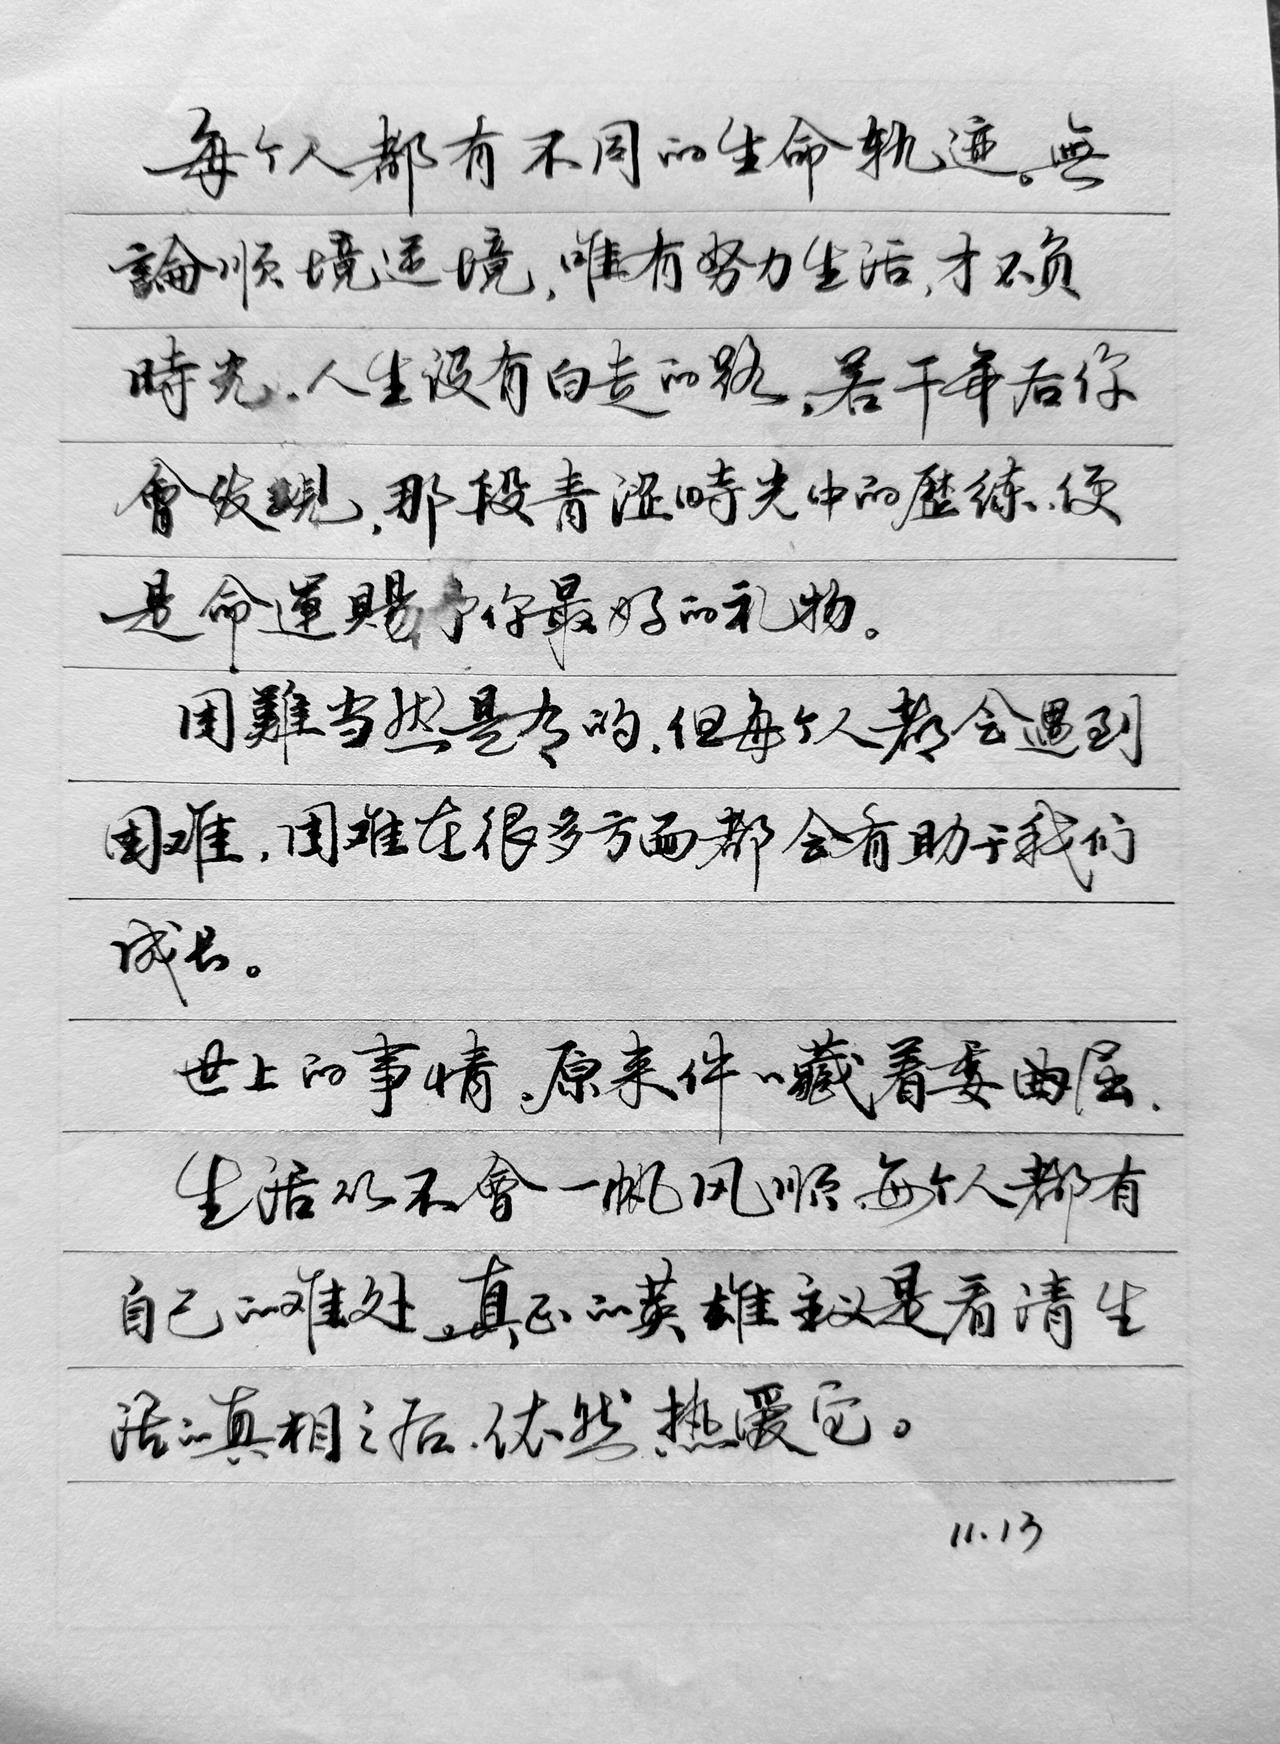 每个人都有不同的生命轨迹。無
論顺境逆境，唯有努力生活，才不负
時光.人生没有白走的路，若干年后你
會发現，那段青涩時光中的歷练、便
是命運賜予你最好的礼物。
困難当然是有的，但每个人都会遇到
困难，困难在很多方面都会有助于我们
成长。
世上的事情，原来件々藏着委曲屈.
生活从不會一帆风顺，每个人都有
自己的难处，真正的英雄主义是看清生
活的真相之后.依然热爱它。
11.13